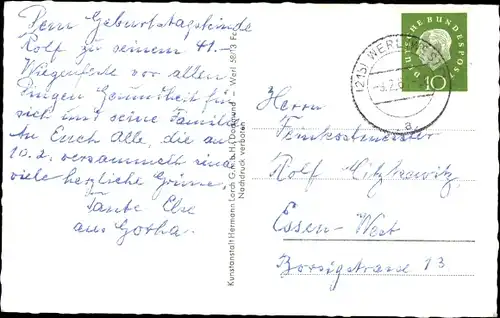 Dem Geburtstagskinde
Rolf zu seinem 41.
Wiegenfeste vor allen
Dingen Gesundheit für
sich und seine Familie.
An Euch Alle, die am
10.2. versammelt sind
viele herzliche Grüsse.
Tante Else
aus Gotha.
Kunstanstalt Hermann Lorch G.m.b.H., Dortmund - Werl 58/13
Nachdruck verboten
DEUTSCHE BUNDESPOST
10
(21b) WERL
a
Herrn
Feinkostmeister
Rolf
Essen-West
Borsigstrasse 13